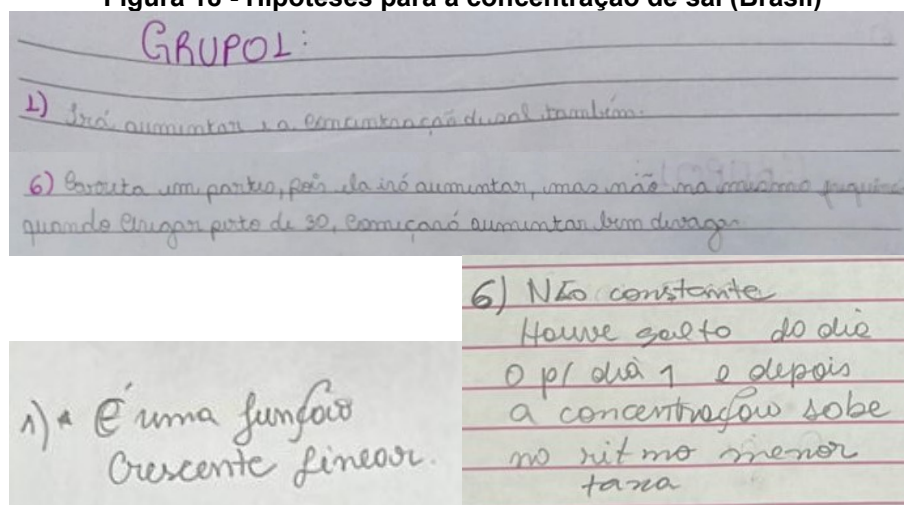 Figura 16 - Hipóteses para a concentração de sal (Brasil)
GRUPO1:
1) Irá aumentar e a concentração de sal também.
6) um partes, pois ela irá aumentar, mas não na mesma
quando chegar perto de 30, começará aumentar bem devagar
1) * É uma função
Crescente linear.
6) Não constante
Houve salto do dia
0 p/ dia 1 e depois
a concentração sobe
no ritmo menor
taxa